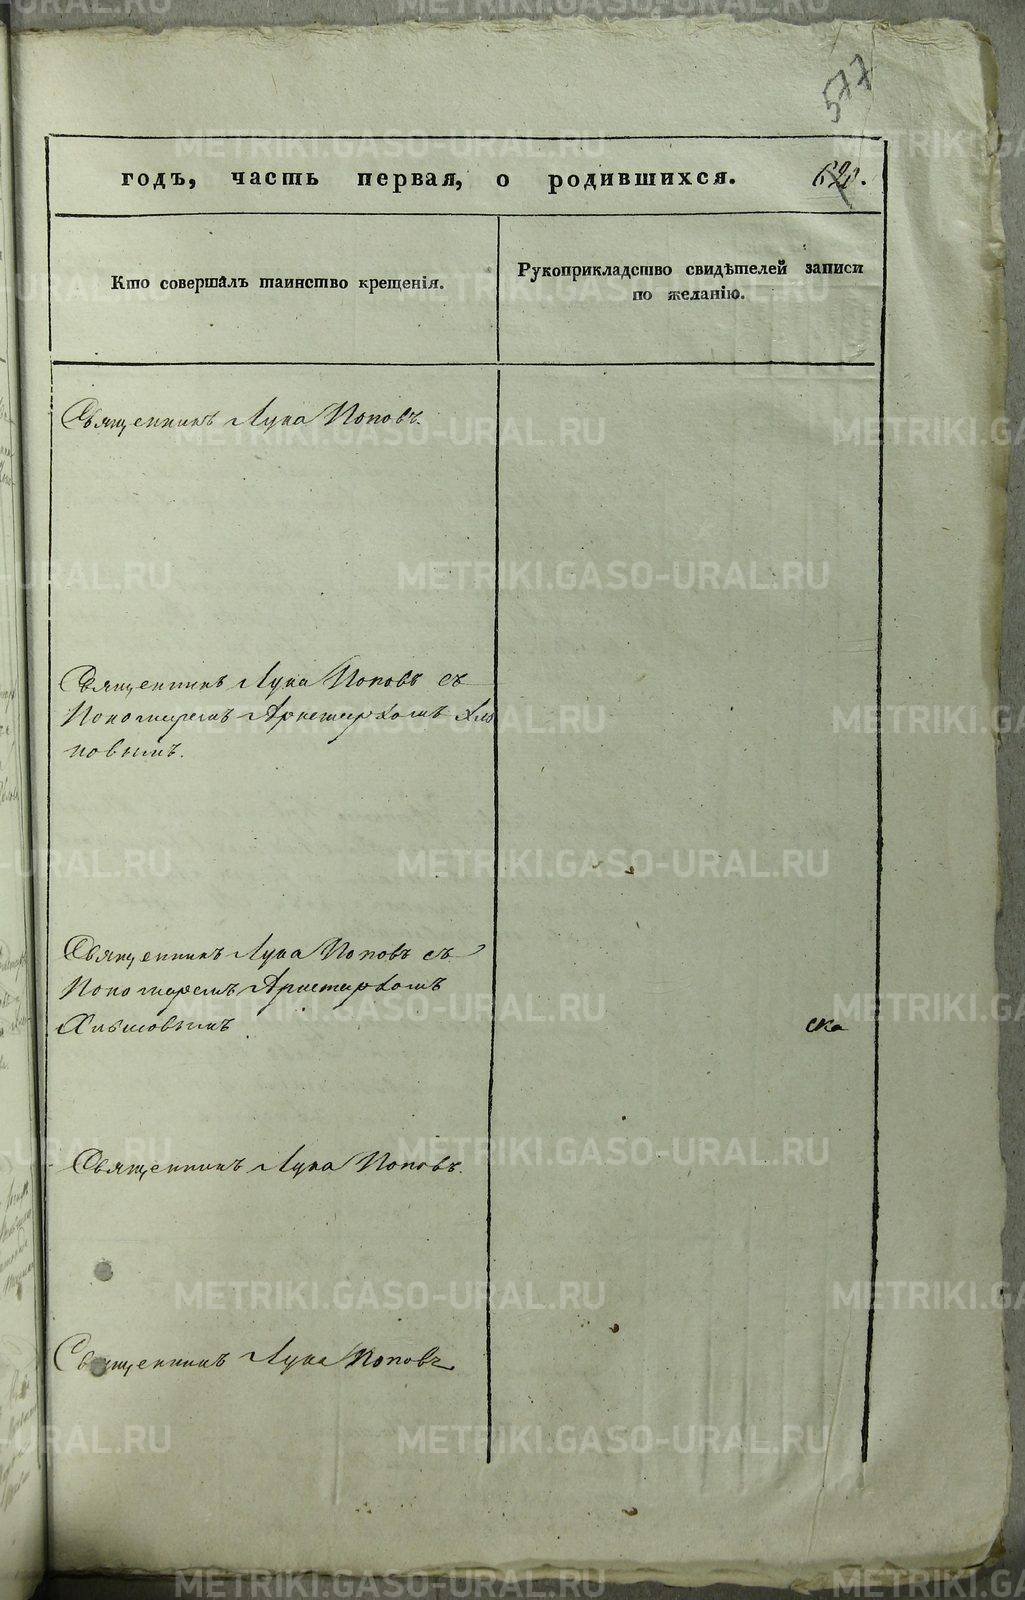 577
годъ, часть первая, о родившихся.
Кто совершалъ таинство крещенія.
Рукоприкладство свидѣтелей записи
по желанію.
Священникъ Лука Поповъ.
Священникъ Лука Поповъ съ
Пономаремъ Аристархомъ
новымъ.
Священникъ Лука Поповъ съ
Пономаремъ Аристархомъ
ска
Священникъ Лука Поповъ.
Священникъ Лука Поповъ
METRIKI.GASO-URAL.RU